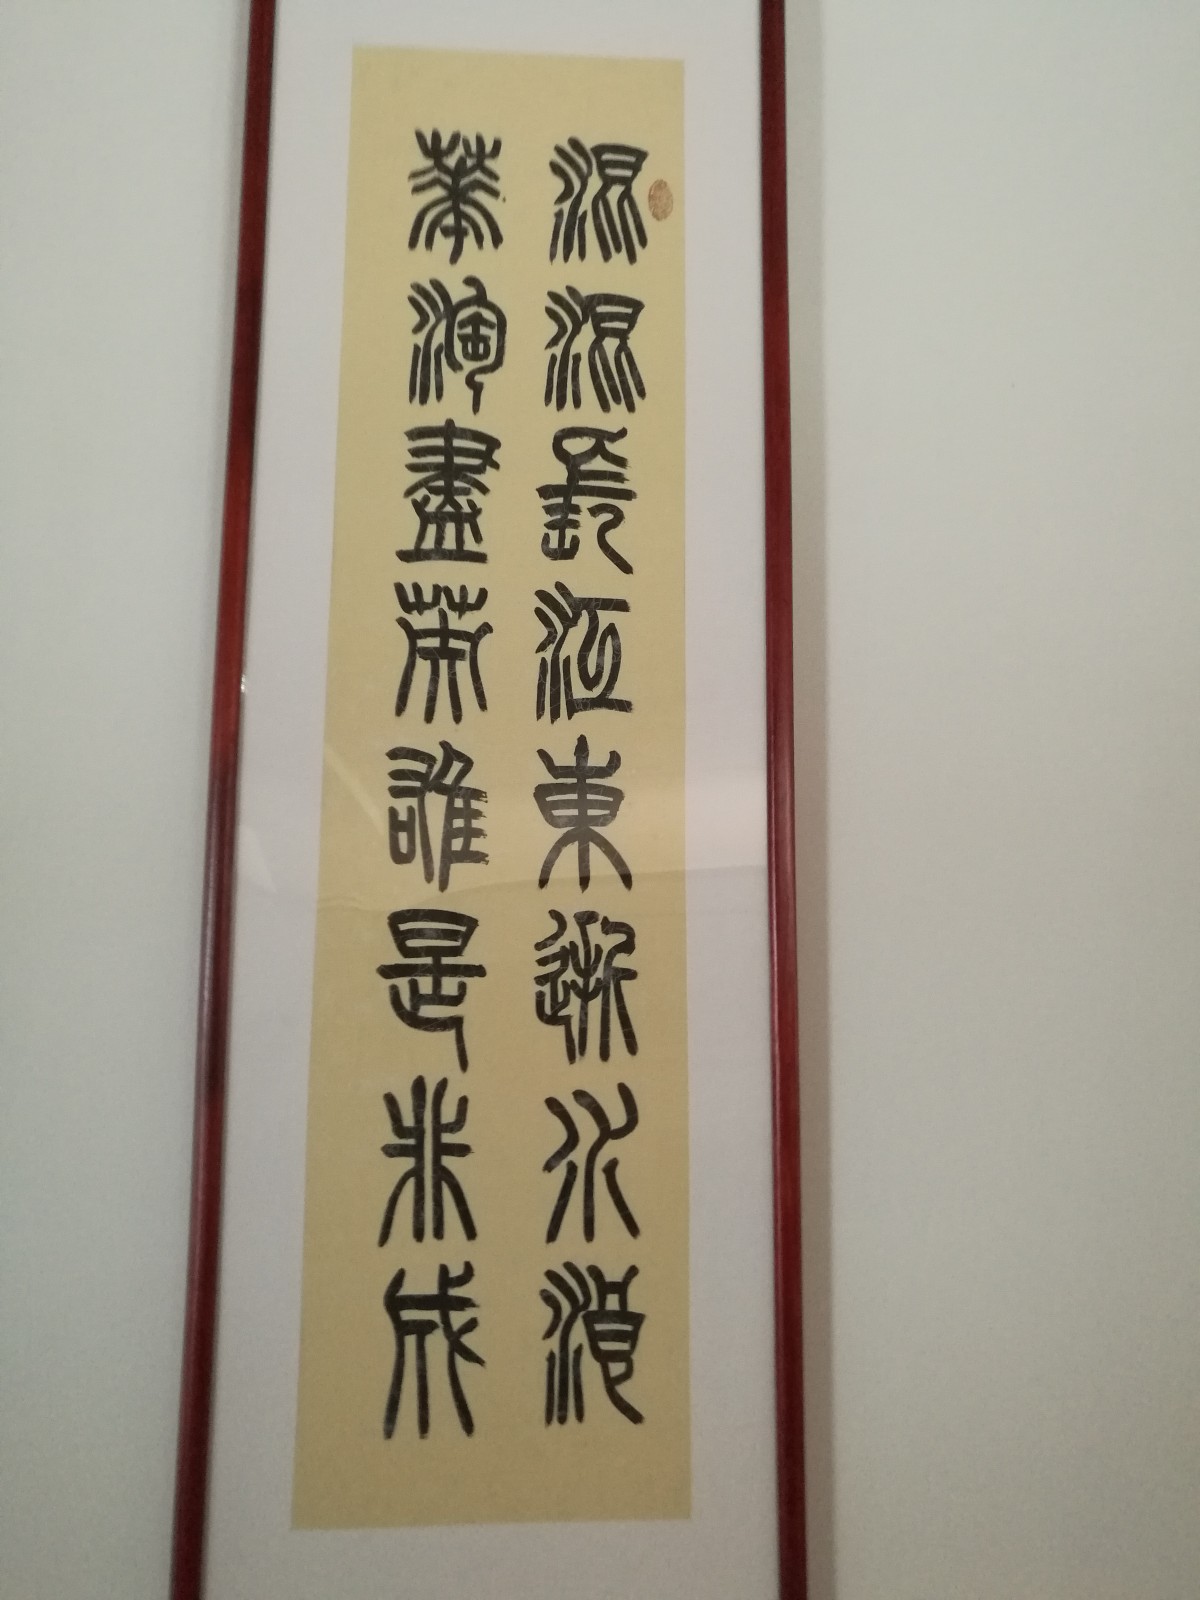 混混長江東逝水浪
華淘盡英雄是非成